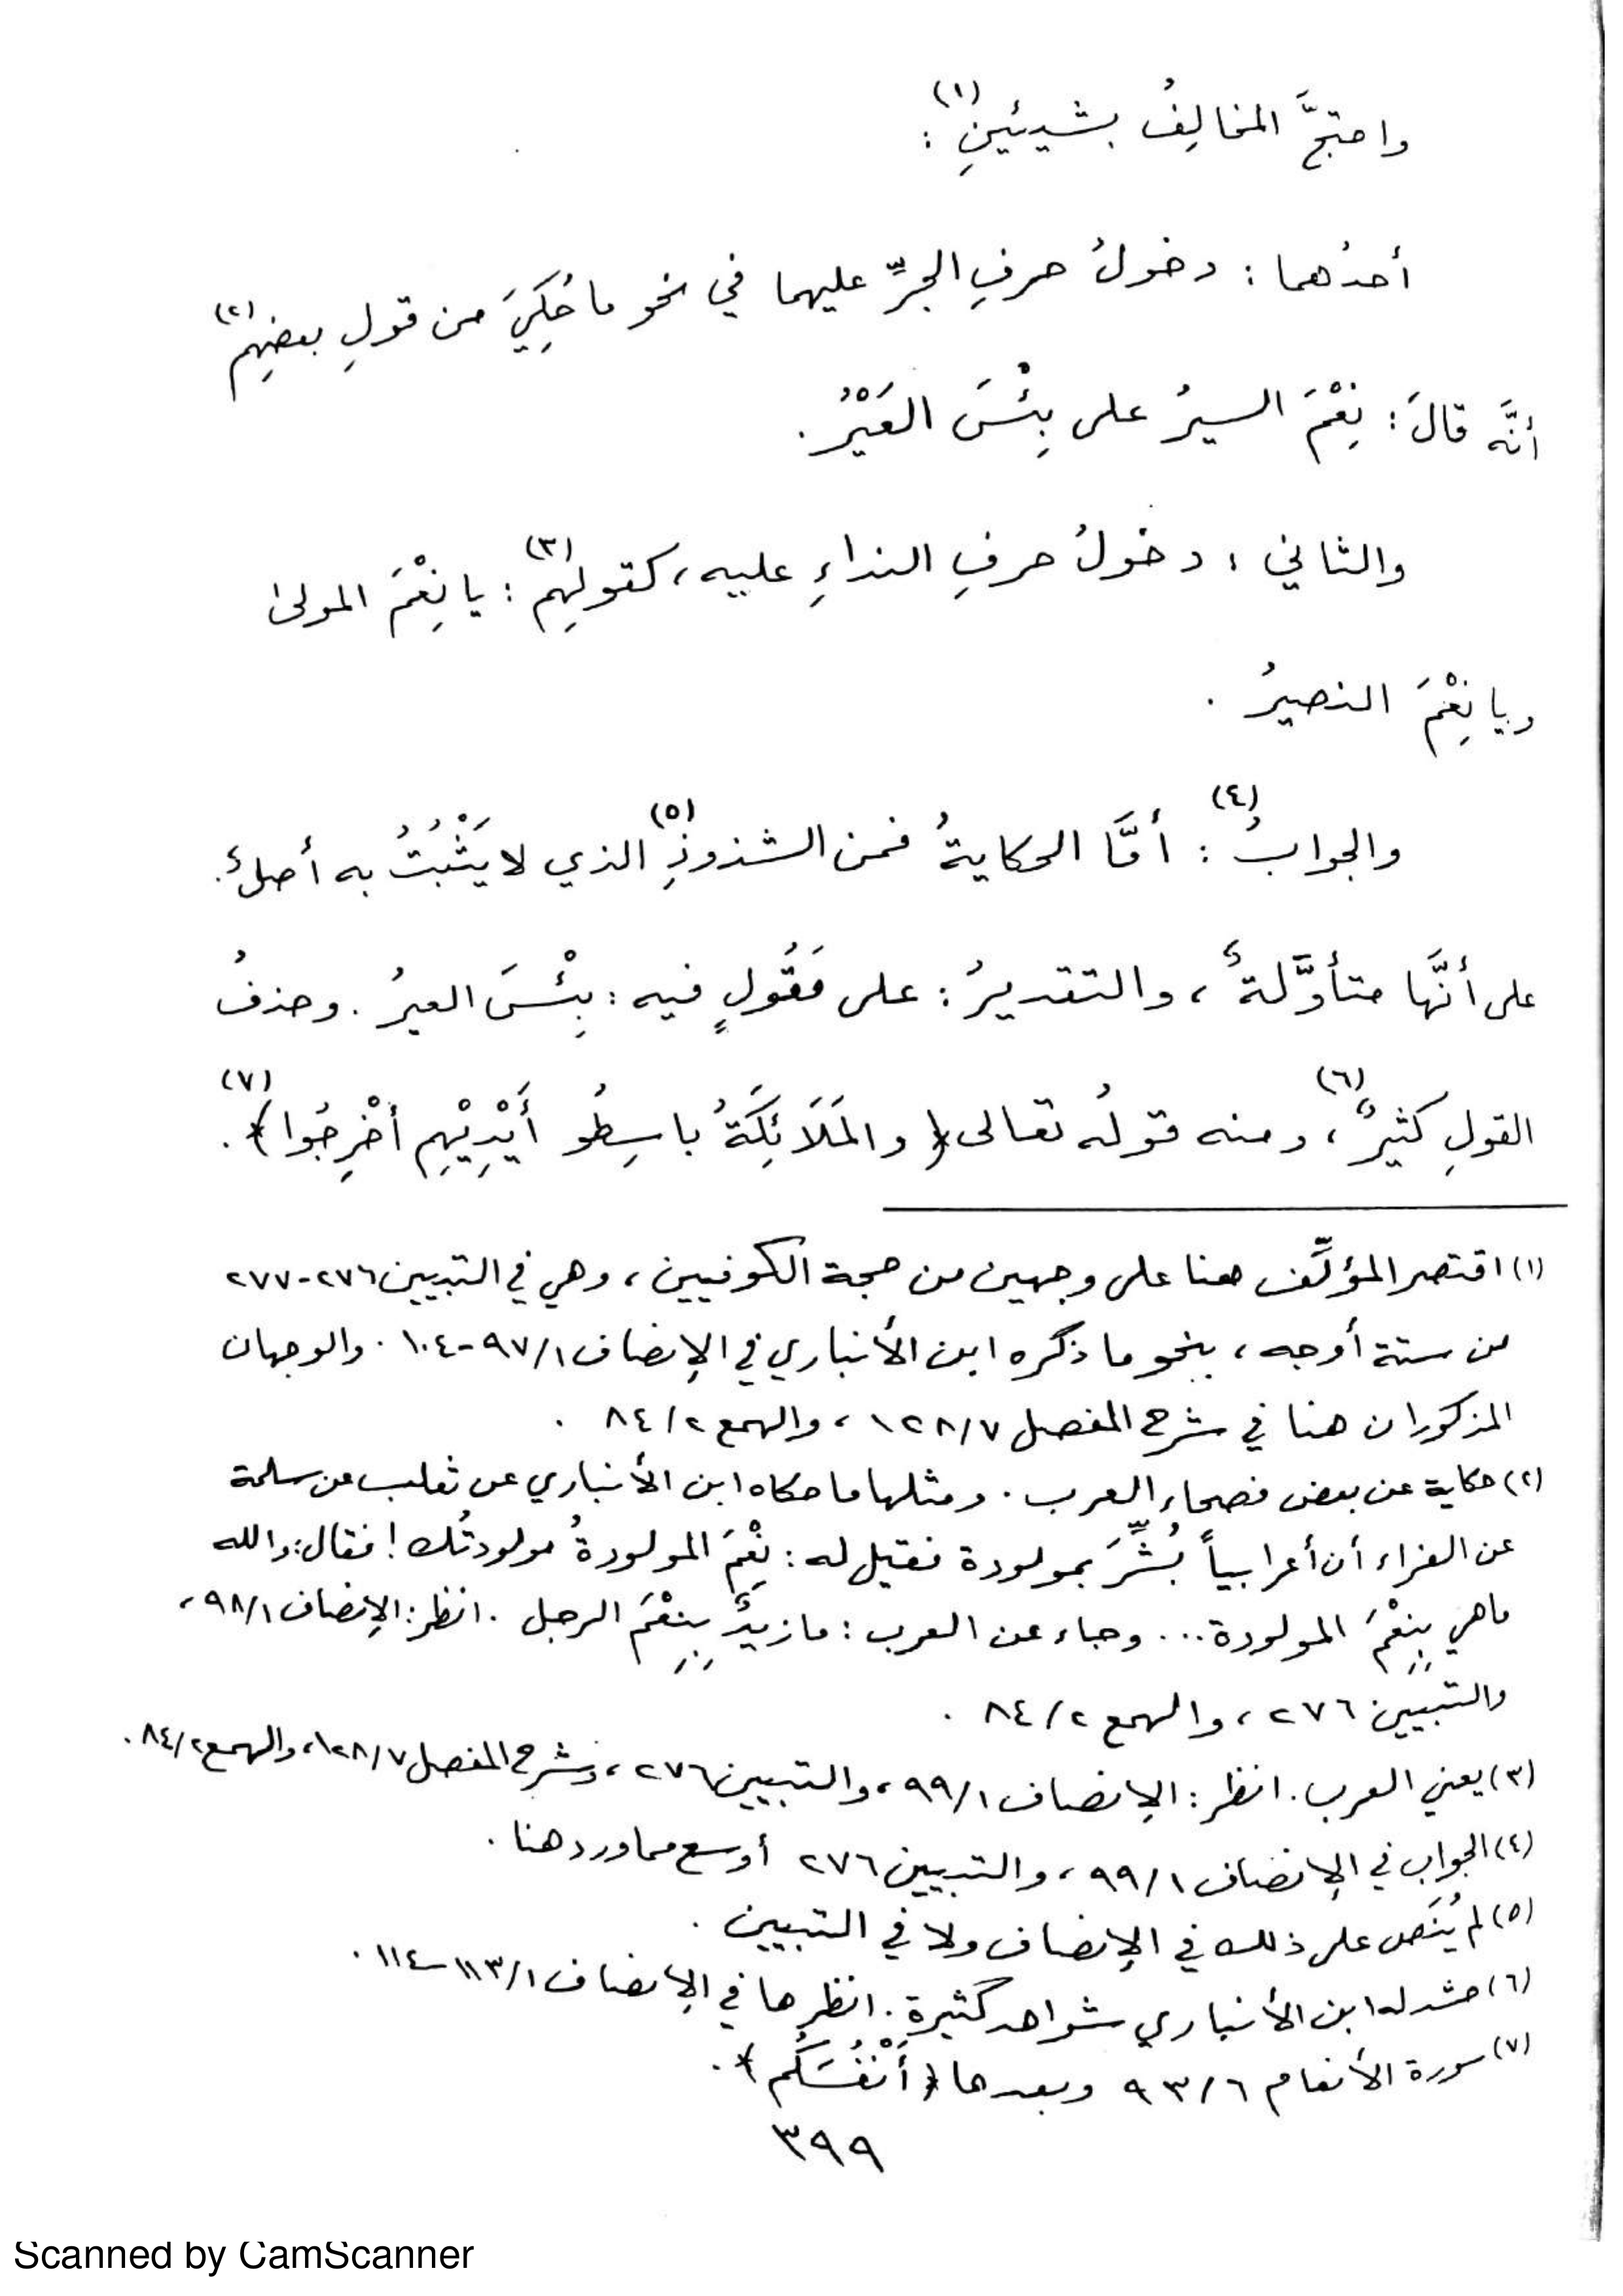 واحتجَّ المخالِفُ بشيئينِ(١) :
أحدُهما : دخولُ حرفِ الجرِّ عليهما في نحو ما حُكِيَ من قولِ بعضِهِم(٢)
أنَّه قالَ : نِعْمَ السيرُ على بِئْسَ العَيْرُ .
والثاني : دخولُ حرفِ النداءِ عليه ، كقولِهِم(٣) : يا نِعْمَ المولى
ويا نِعْمَ النصيرُ .
والجوابُ(٤) : أمَّا الحكايةُ فمن الشذوذِ(٥) الذي لا يَثْبُتُ به أصلٌ .
على أنَّها متأوَّلةٌ ، والتقديرُ : على مَقُولٍ فيه : بِئْسَ العيرُ . وحذفُ
القولِ كثيرٌ(٦) ، ومنه قولُه تعالى ﴿ والمَلَائِكَةُ باسِطُو أَيْدِيْهِم أخْرِجُوا ﴾(٧) .
(١) اقتصر المؤلِّف هنا على وجهين من حجة الكوفيين ، وهي في التبيين ٢٧٦-٢٧٧
من ستة أوجه ، بنحو ما ذكره ابن الأنباري في الإنصاف ٩٧/١-١٠٤ . والوجهان
المذكوران هنا في شرح المفصل ١٢٨/٧ ، والهمع ٨٤/٢ .
(٢) حكاية عن بعض فصحاء العرب . ومثلها ما حكاه ابن الأنباري عن ثعلب عن سلمة
عن الفراء أن أعرابياً بُشِّرَ بمولودة فقيل له : نِعْمَ المولودةُ مولودتُك ! فقال : والله
ما هي بِنِعْمَ المولودة ... وجاء عن العرب : ما زيدٌ بِنِعْمَ الرجل . انظر : الإنصاف ٩٨/١ ،
والتبيين ٢٧٦ ، والهمع ٨٤/٢ .
(٣) يعني العرب . انظر : الإنصاف ٩٩/١ ، والتبيين ٢٧٦ ، وشرح المفصل ١٢٨/٧ ، والهمع ٨٤/٢ .
(٤) الجواب في الإنصاف ٩٩/١ ، والتبيين ٢٧٦ أوسع مما ورد هنا .
(٥) لم يُنَص على ذلك في الإنصاف ولا في التبيين .
(٦) حشد له ابن الأنباري شواهد كثيرة . انظرها في الإنصاف ١١٣/١-١١٤ .
(٧) سورة الأنعام ٩٣/٦ وبعدها ﴿ أَنْفُسَكُم ﴾ .
٣٩٩
Scanned by CamScanner